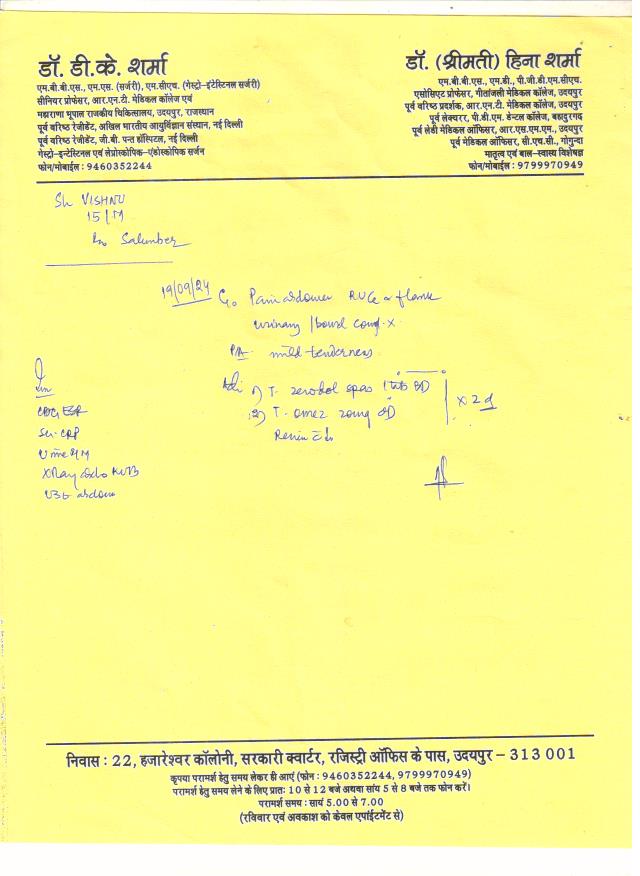 डॉ. डी.के. शर्मा
एम.बी.बी.एस., एम.एस. (सर्जरी), एम.सीएच. (गेस्ट्रो-इंटेस्टिनल सर्जरी)
सीनियर प्रोफेसर, आर.एन.टी. मेडिकल कॉलेज एवं
महाराणा भूपाल राजकीय चिकित्सालय, उदयपुर, राजस्थान
पूर्व वरिष्ठ रेजीडेंट, अखिल भारतीय आयुर्विज्ञान संस्थान, नई दिल्ली
पूर्व वरिष्ठ रेजीडेंट, जी.बी. पन्त हॉस्पिटल, नई दिल्ली
गेस्ट्रो-इन्टेस्टिनल एवं लेप्रोस्कोपिक-एंडोस्कोपिक सर्जन
फोन/मोबाईल : 9460352244
डॉ. (श्रीमती) हिना शर्मा
एम.बी.बी.एस., एम.डी., पी.जी.डी.एम.सीएच.
एसोसिएट प्रोफेसर, गीतांजली मेडिकल कॉलेज, उदयपुर
पूर्व वरिष्ठ प्रदर्शक, आर.एन.टी. मेडिकल कॉलेज, उदयपुर
पूर्व लेक्चरर, पी.डी.एम. डेन्टल कॉलेज, बहादुरगढ़
पूर्व लेडी मेडिकल ऑफिसर, आर.एस.एम.एम., उदयपुर
पूर्व मेडिकल ऑफिसर, सी.एच.सी., गोगुन्दा
मातृत्व एवं बाल-स्वास्थ्य विशेषज्ञ
फोन/मोबाईल : 9799970949
Sh VISHNU
15/M
Salumber
19/09/24 C/o Pain abdomen RUQ & flank
urinary / bowel comp - x
P/A - mild tenderness
Adv 1) T. zerodol spas 1 tab BD
2) T. omez 20mg OD
x 2 d
Review
CBC, ESR
Se-CRP
Urine R/M
XRay abdo KUB
USG abdomen
निवास : 22, हजारेश्वर कॉलोनी, सरकारी क्वार्टर, रजिस्ट्री ऑफिस के पास, उदयपुर – 313 001
कृपया परामर्श हेतु समय लेकर ही आएं (फोन : 9460352244, 9799970949)
परामर्श हेतु समय लेने के लिए प्रातः 10 से 12 बजे अथवा सांय 5 से 8 बजे तक फोन करें।
परामर्श समय : सायं 5.00 से 7.00
(रविवार एवं अवकाश को केवल एपाईंटमेंट से)